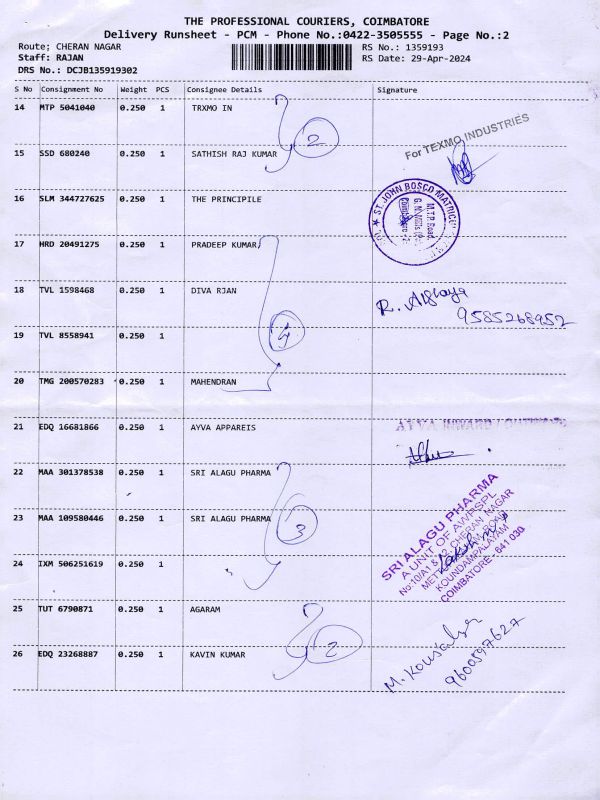 THE PROFESSIONAL COURIERS, COIMBATORE
Delivery Runsheet - PCM - Phone No.:0422-3505555 - Page No.:2
Route; CHERAN NAGAR RS No.: 1359193
Staff: RAJAN RS Date: 29-Apr-2024
DRS No.: DCJB135919302
S No Consignment No Weight PCS Consignee Details Signature
14 MTP 5041040 0.250 1 TRXMO IN
2
For TEXMO INDUSTRIES
15 SSD 680240 0.250 1 SATHISH RAJ KUMAR
16 SLM 344727625 0.250 1 THE PRINCIPILE
ST. JOHN BOSCO MATRIC
M.T.P. Road
17 HRD 20491275 0.250 1 PRADEEP KUMAR
18 TVL 1598468 0.250 1 DIVA RJAN
R.
9585268952
19 TVL 8558941 0.250 1
4
20 TMG 200570283 0.250 1 MAHENDRAN
21 EDQ 16681866 0.250 1 AYVA APPAREIS
22 MAA 301378538 0.250 1 SRI ALAGU PHARMA
23 MAA 109580446 0.250 1 SRI ALAGU PHARMA
3
SRI ALAGU PHARMA
A UNIT OF AWPSPL
No:10/A1 & 12 CHERAN NAGAR
ROAD
KOUNDAMPALAYAM
COIMBATORE - 641 030
24 IXM 506251619 0.250 1
25 TUT 6790871 0.250 1 AGARAM
2
26 EDQ 23268887 0.250 1 KAVIN KUMAR
M. Kousalya
9600597627